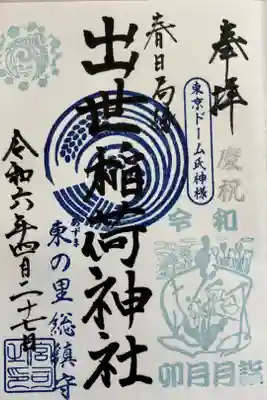 奉拝
慶祝
令和
卯月月詣
東京ドーム氏神様
春日局
出世稲荷神社
あずま
東の里総鎮守
令和六年四月二十七日